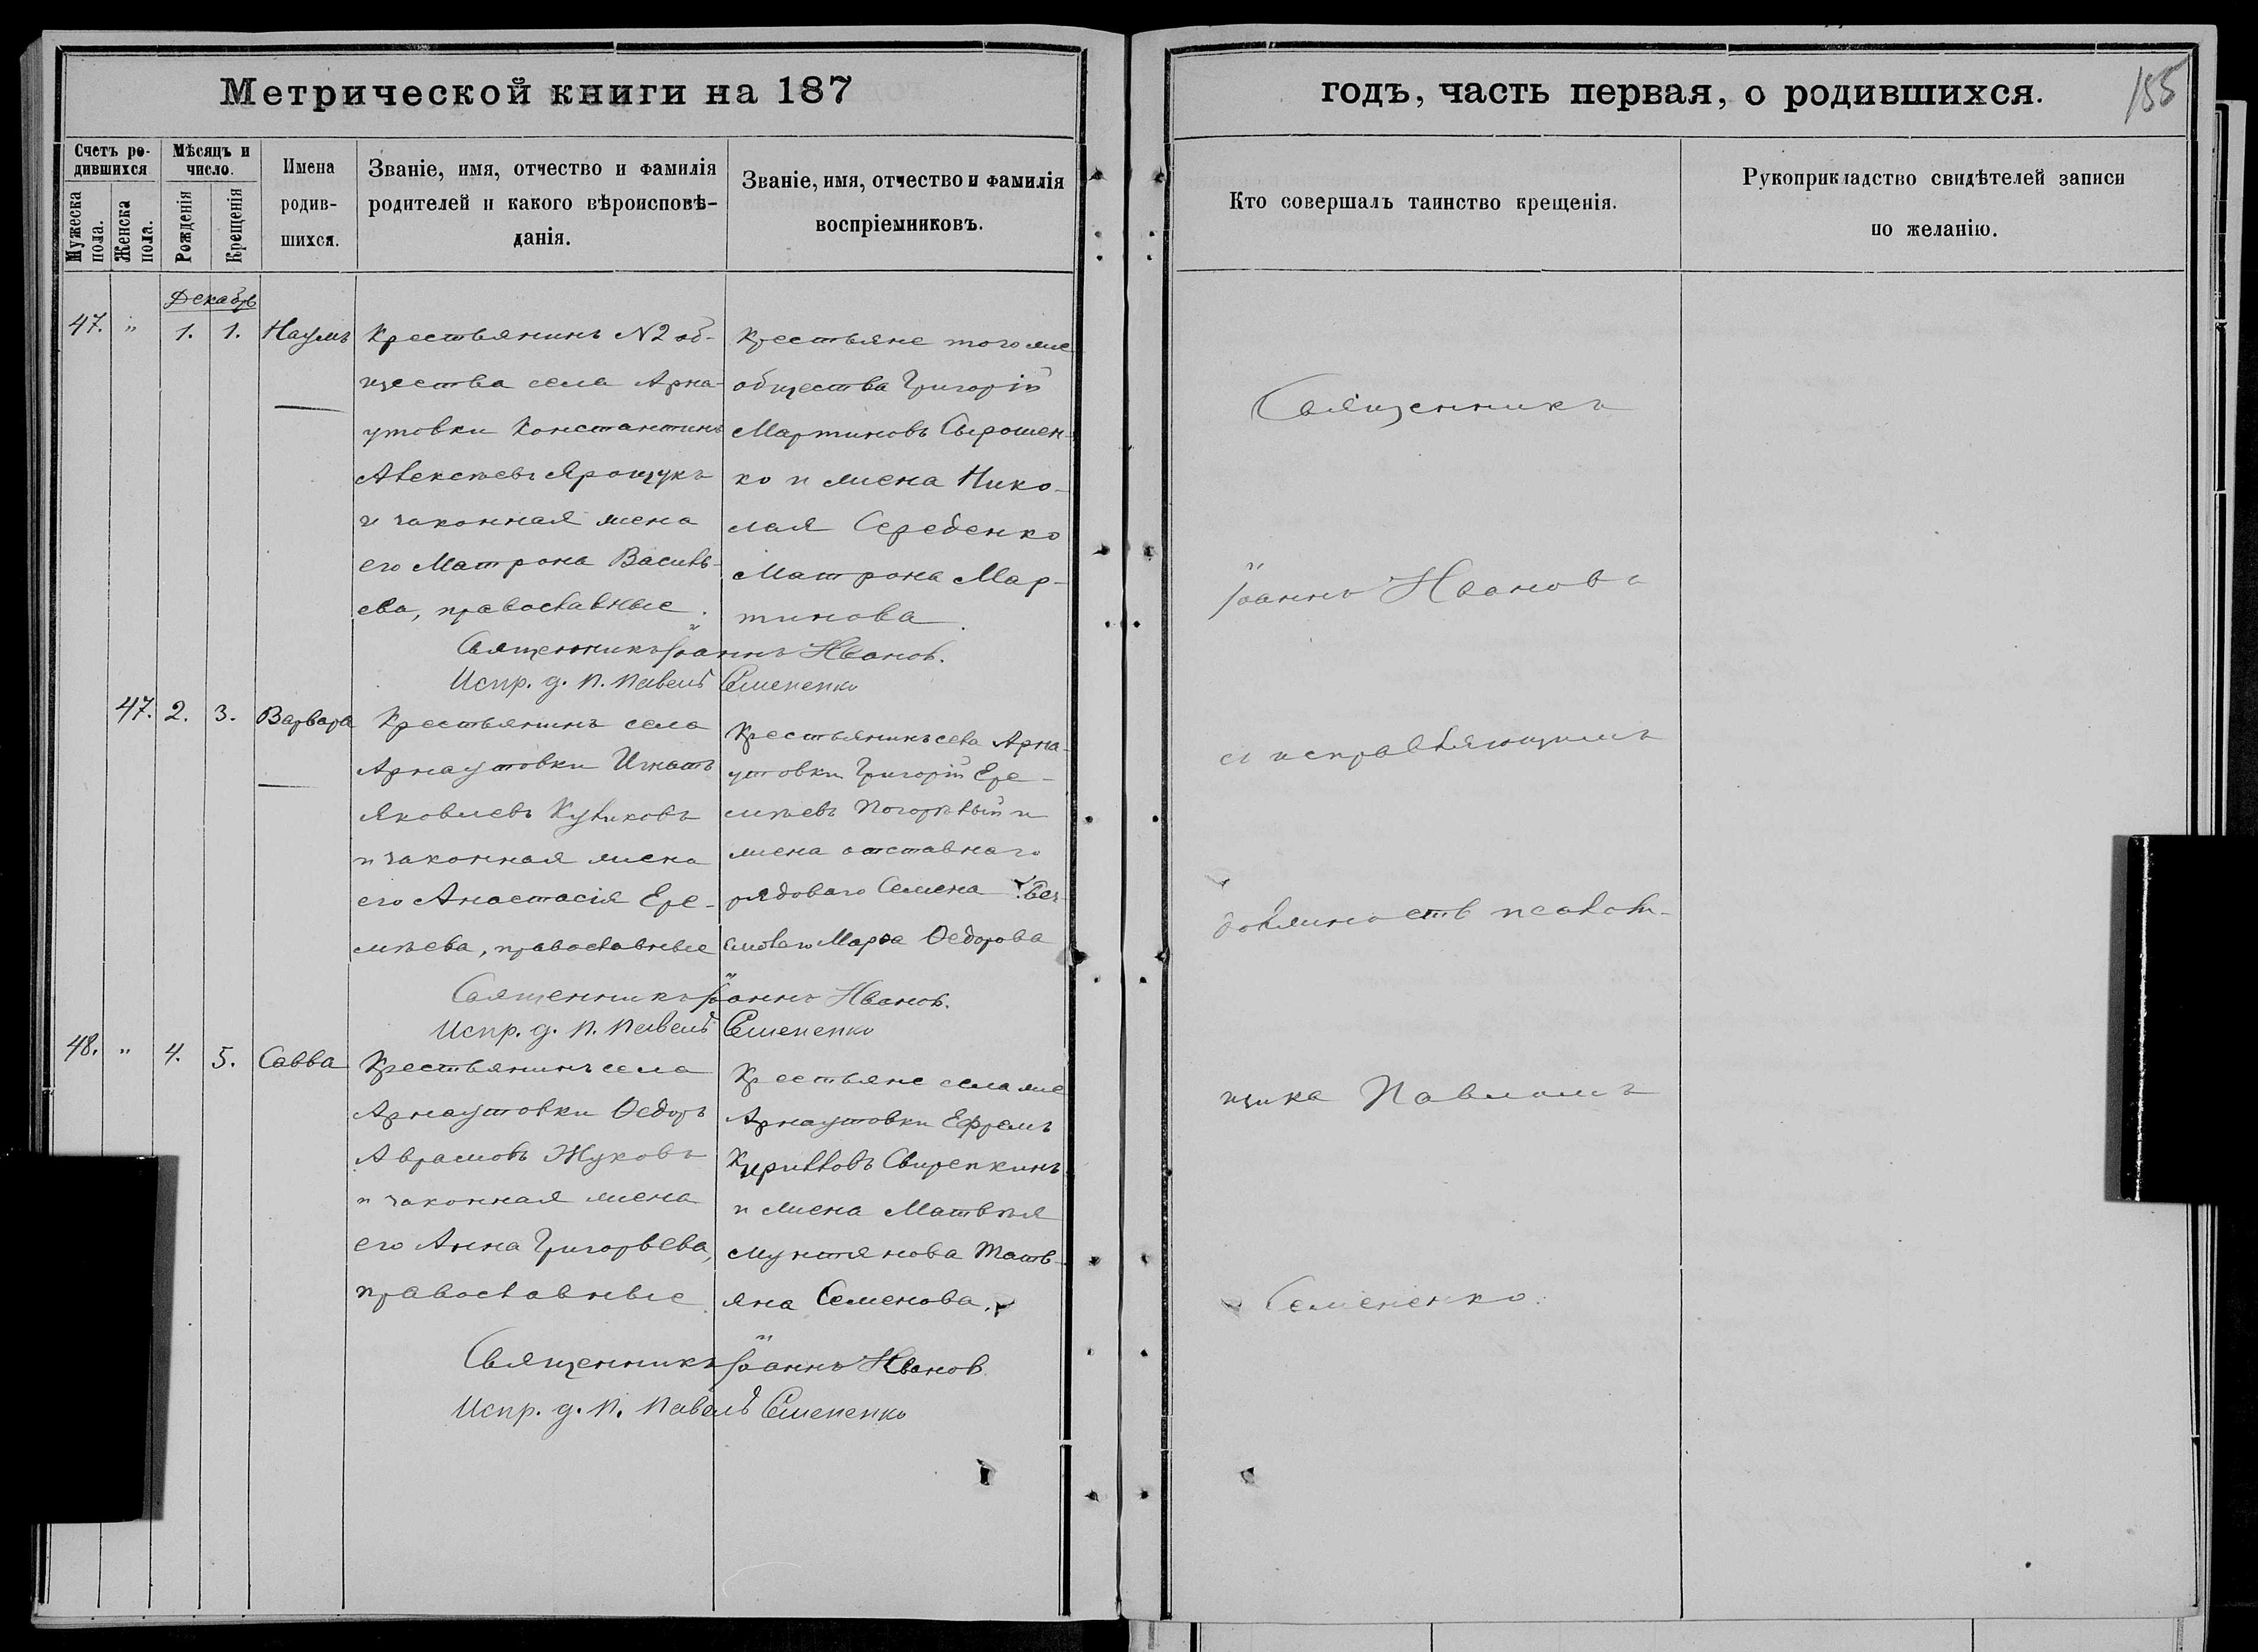 Метрической книги на 187
годъ, часть первая, о родившихся.
155
Счетъ ро-
дившихся
Мужеска пола.
Женска пола.
Мѣсяцъ и
число.
Рожденія
Крещенія
Имена
родив-
шихся.
Званіе, имя, отчество и фамилія
родителей и какого вѣроисповѣ-
данія.
Званіе, имя, отчество и фамилія
воспріемниковъ.
Кто совершалъ таинство крещенія.
Рукоприкладство свидѣтелей записи
по желанію.
Декабрь
47. " 1. 1. Наумъ
Крестьянинъ N2 об-
щества села Арна-
утовки Константинъ
Алексѣевъ Ярощукъ
и законная жена
его Матрона Василь-
ева, православные.
Крестьяне того же
общества Григорій
Мартиновъ Сырошен-
ко и жена Нико-
лая Середенко
Матрона Мар-
тинова.
Священникъ Іоаннъ Иванов.
Испр. д. п. Павелъ Семененко
47. 2. 3. Варвара
Крестьянинъ села
Арнаутовки Игнатъ
Яковлевъ Куликовъ
и законная жена
его Анастасія Ере-
мѣева, православные
Крестьянинъ села Арна-
утовки Григорій Ере-
мѣевъ Погорѣлый и
жена отставнаго
рядоваго Семена
Марѳа Ѳедорова
Священникъ Іоаннъ Иванов.
Испр. д. п. Павелъ Семененко
48. " 4. 5. Савва
Крестьянинъ села
Арнаутовки Ѳедоръ
Аврамовъ Жуковъ
и законная жена
его Анна Григорьева,
православные.
Крестьяне села же
Арнаутовки Ефремъ
Кирилловъ Свирепкинъ
и жена Матвѣя
Мунтянова Тать-
яна Семенова.
Священникъ Іоаннъ Иванов
Испр. д. п. Павелъ Семененко
Священникъ
Іоаннъ Ивановъ
съ исправляющимъ
должность псалом-
щика Павломъ
Семененко.